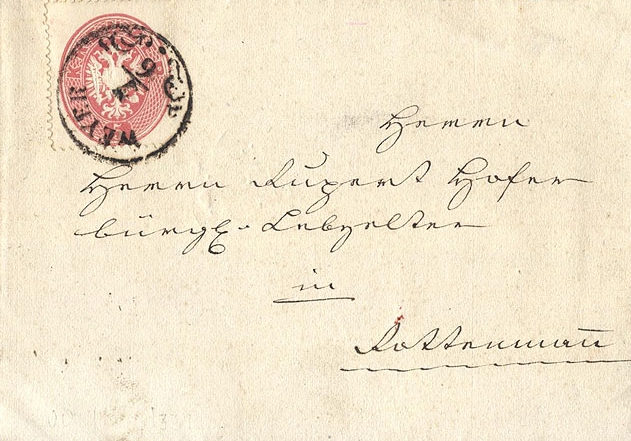 WEYER
9/4
Herrn
Herrn Rupert Hofer
bürgl. Lebzelter
in
Rottenmañ